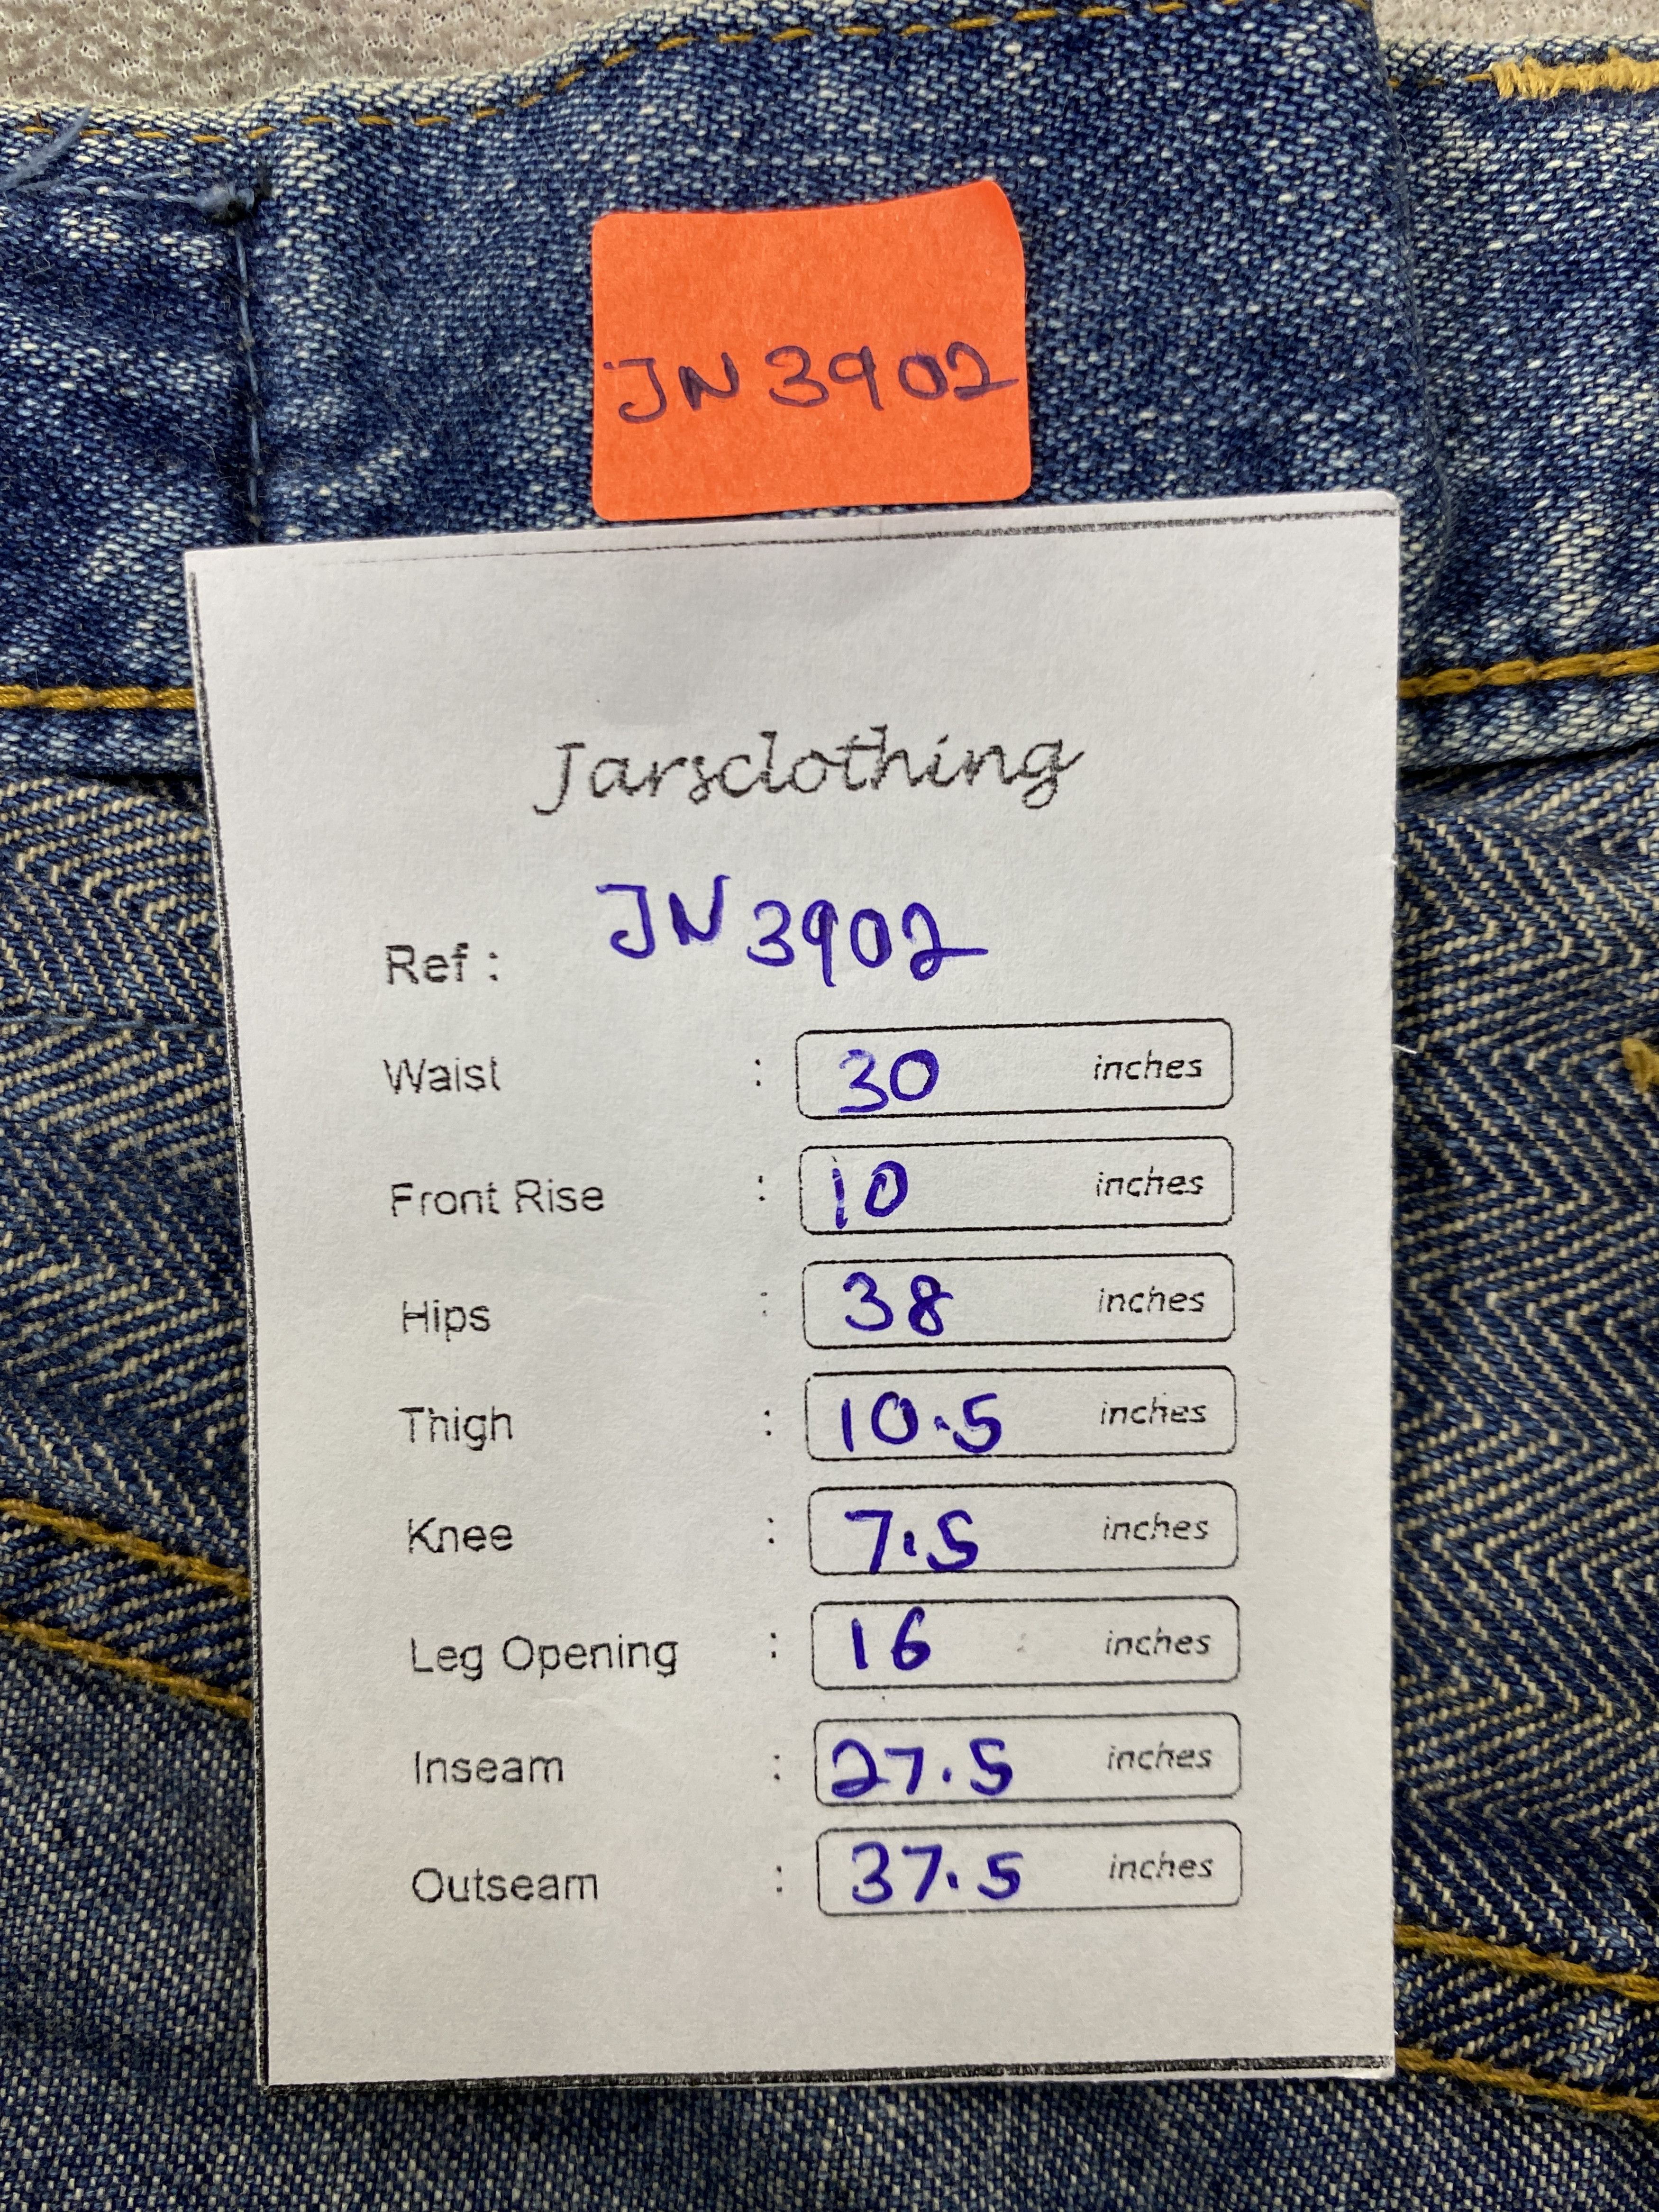 JN 3902
Jarsclothing
Ref : JN 3902
Waist : 30 inches
Front Rise : 10 inches
Hips : 38 inches
Thigh : 10.5 inches
Knee : 7.5 inches
Leg Opening : 16 inches
Inseam : 27.5 inches
Outseam : 37.5 inches